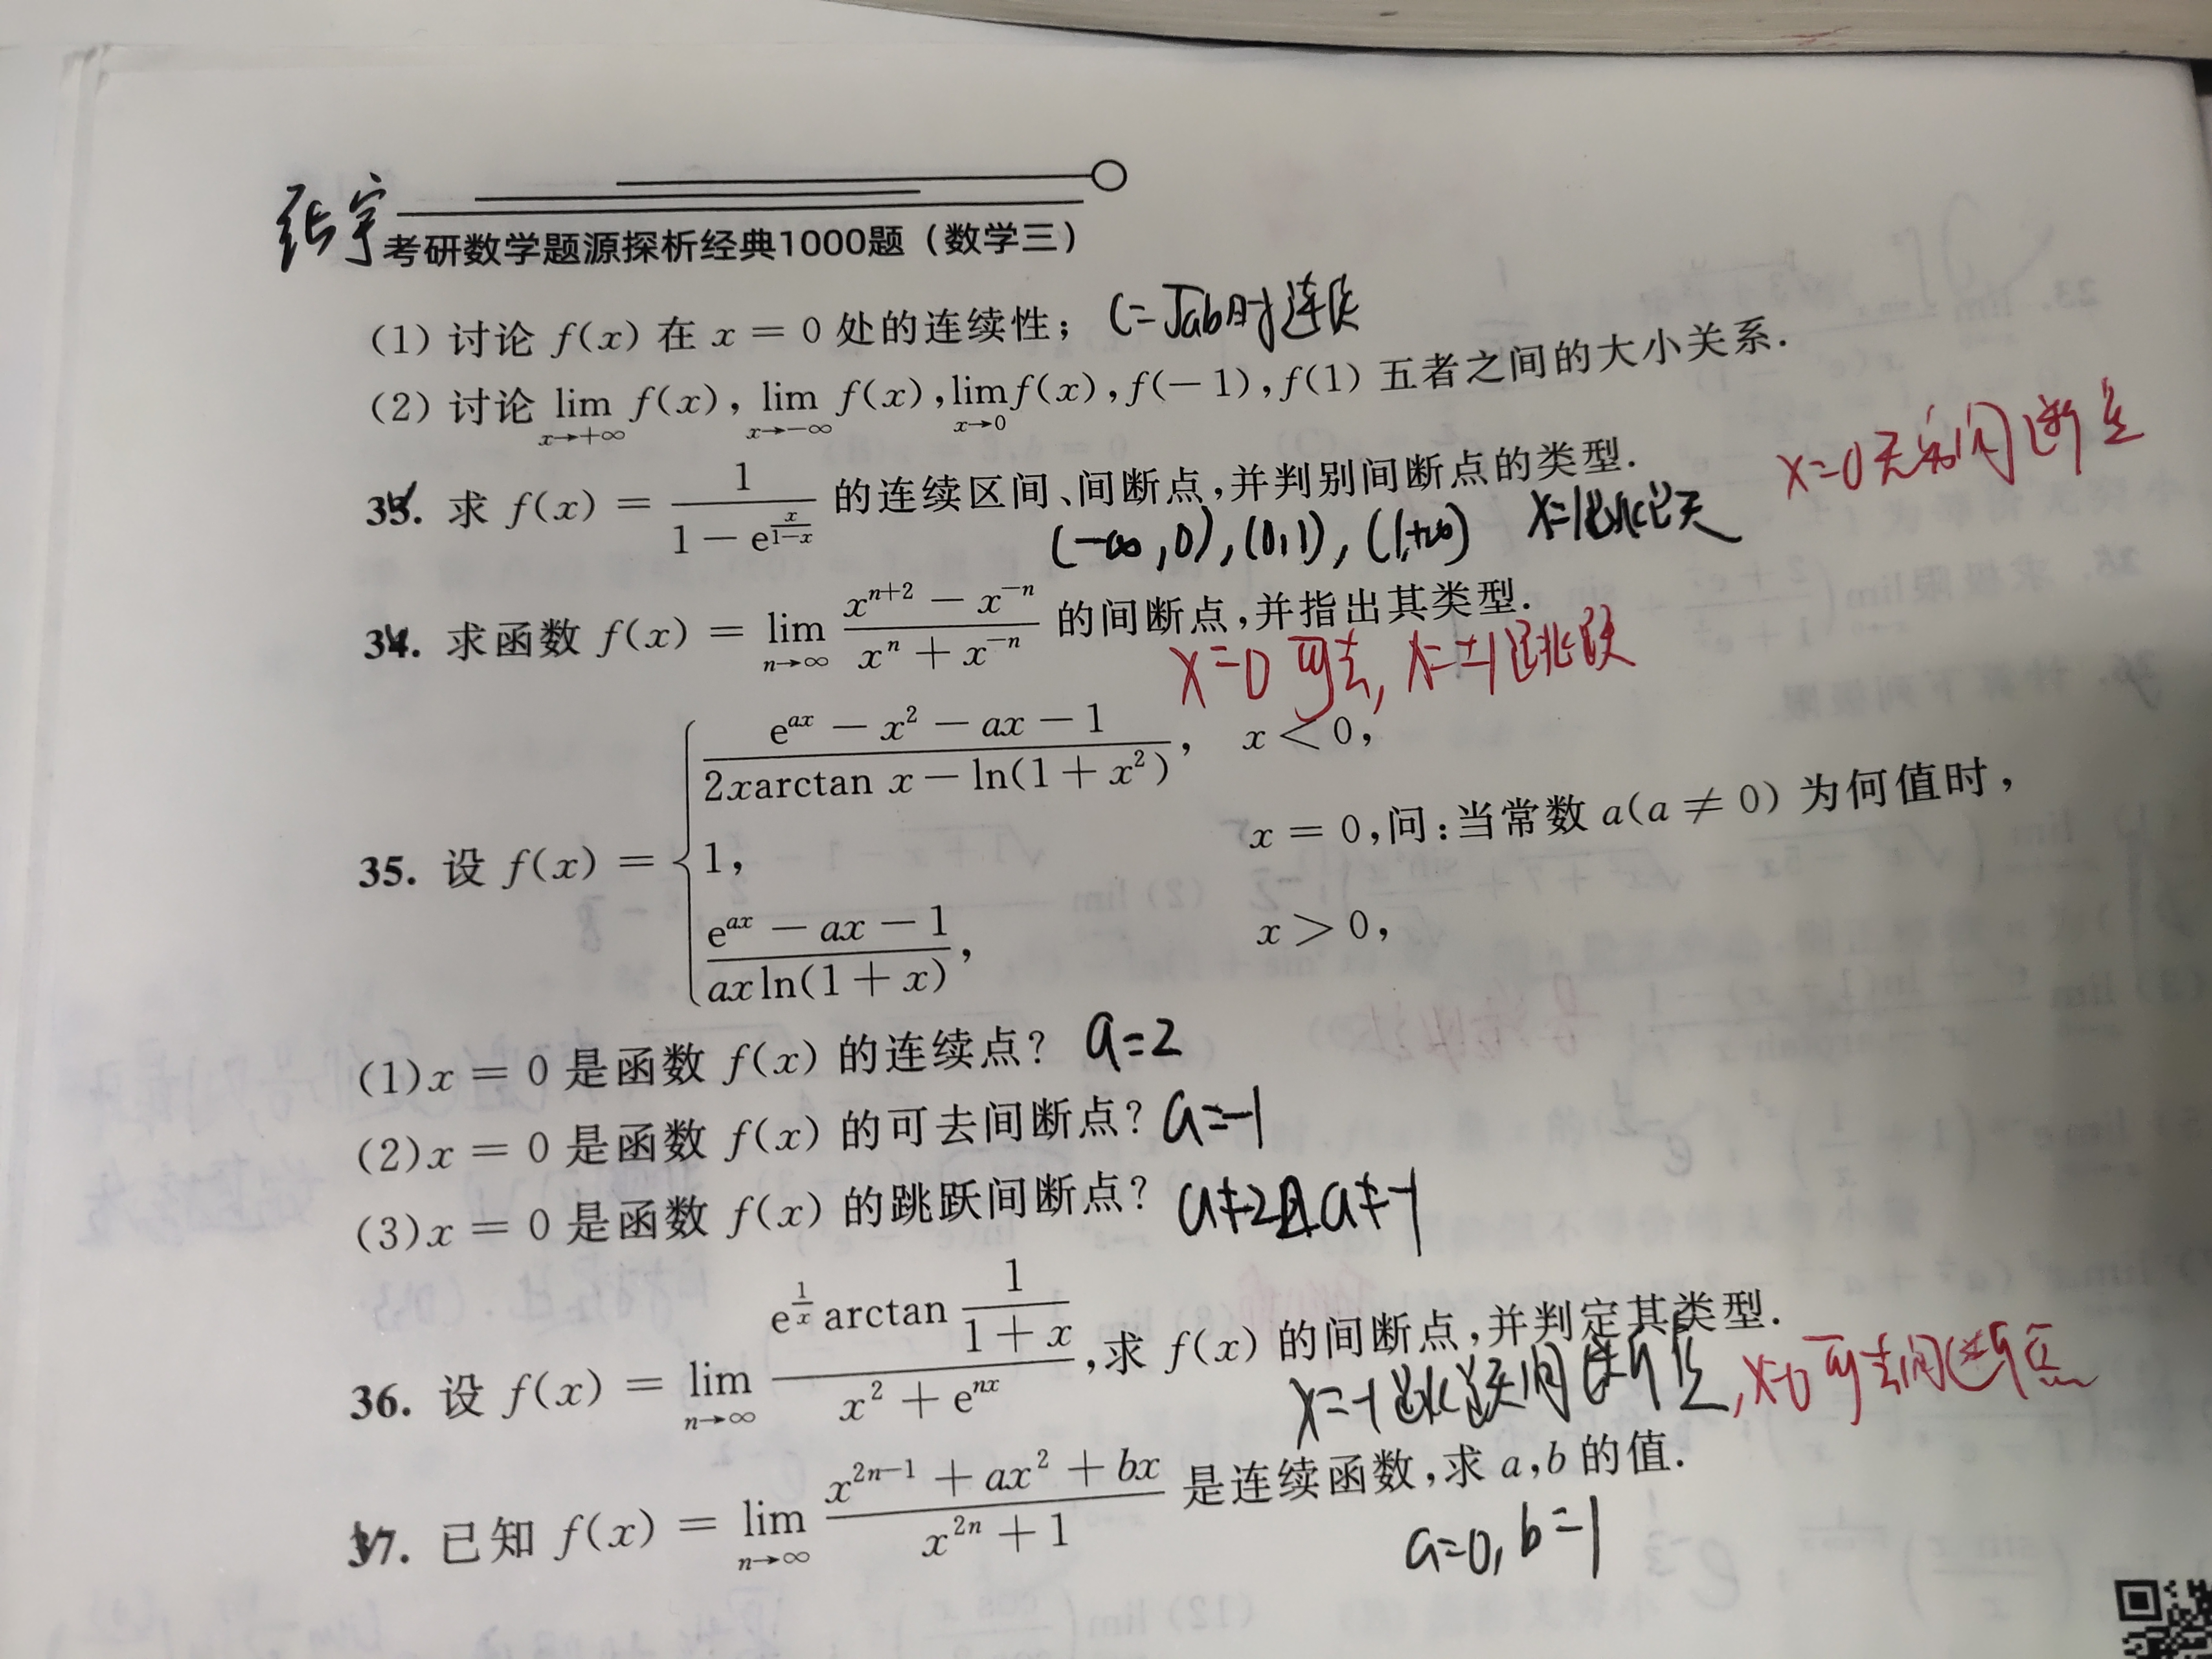 张宇
考研数学题源探析经典1000题（数学三）
(1) 讨论 f(x) 在 x = 0 处的连续性； C=√ab时连续
(2) 讨论 lim_{x→+∞} f(x), lim_{x→-∞} f(x), lim_{x→0} f(x), f(-1), f(1) 五者之间的大小关系.
33. 求 f(x) = 1/(1 - e^{x/(1-x)}) 的连续区间、间断点,并判别间断点的类型. x=0无穷间断点
(-∞,0),(0,1),(1,+∞) x=1跳跃
34. 求函数 f(x) = lim_{n→∞} (x^{n+2} - x^{-n})/(x^n + x^{-n}) 的间断点,并指出其类型.
x=0可去, x=±1跳跃
35. 设 f(x) = { (e^{ax} - x^2 - ax - 1)/(2xarctan x - ln(1 + x^2)), x < 0,
1, x = 0, 问:当常数 a(a ≠ 0) 为何值时,
(e^{ax} - ax - 1)/(axln(1 + x)), x > 0,
(1)x = 0 是函数 f(x) 的连续点? a=2
(2)x = 0 是函数 f(x) 的可去间断点? a=-1
(3)x = 0 是函数 f(x) 的跳跃间断点? a≠2且a≠-1
36. 设 f(x) = lim_{n→∞} (e^{1/x} arctan 1/(1 + x))/(x^2 + e^{nx}),求 f(x) 的间断点,并判定其类型.
x=-1跳跃间断点, x=0可去间断点
37. 已知 f(x) = lim_{n→∞} (x^{2n-1} + ax^2 + bx)/(x^{2n} + 1) 是连续函数,求 a,b 的值.
a=0, b=1